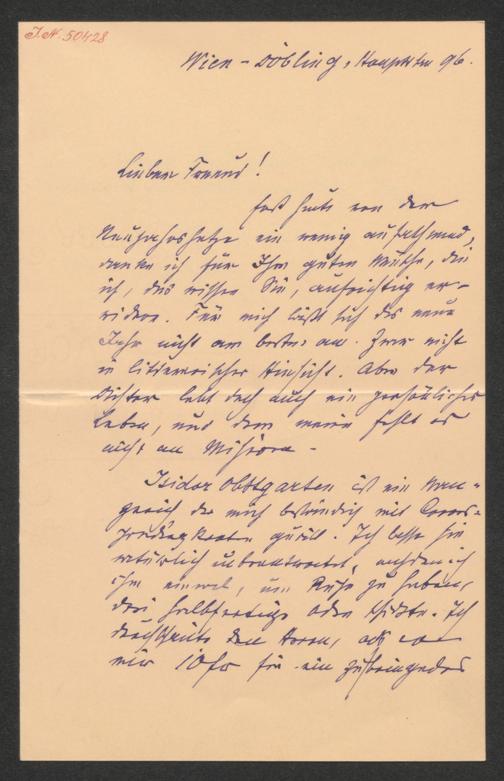 I.N. 50428
Wien – Döbling, Hauptstr. 96.
Lieber Freund!
Erst heute von der
Neujahrshetze ein wenig aufathmend,
danke ich für Ihre guten Wünsche, die
ich, das wissen Sie, aufrichtig er-
widere. Für mich läßt sich das neue
Jahr nicht am besten an. Zwar nicht
in litterarischer Hinsicht. Aber der
Dichter lebt doch auch ein persönliches
Leben, und dem meinen fehlt es
nicht an Misèren –
Isidor Obstgarten ist ein
der mich beständig mit Corres-
pondenzkarten quält. Ich lasse sie
natürlich unbeantwortet, nachdem ich
ihm einmal, um Ruhe zu haben,
drei halbfertige
den Herrn, als er
mir 10 für ein